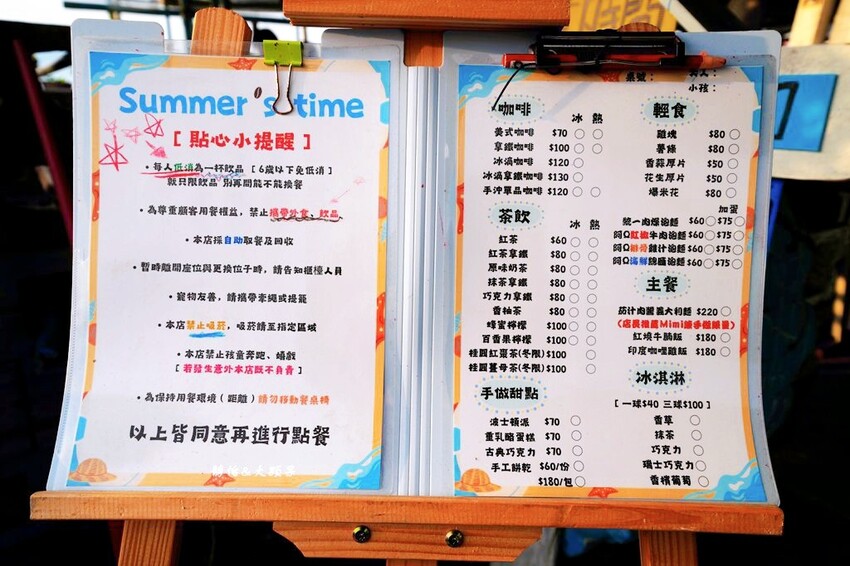 Summer's time
[ 貼心小提醒 ]
•每人低消為一杯飲品 [ 6歲以下免低消 ]
就只限飲品 別再問能不能換餐
•為尊重顧客用餐權益，禁止攜帶外食、飲品
•本店採自助取餐及回收
•暫時離開座位與更換位子時，請告知櫃檯人員
•寵物友善，請攜帶牽繩或提籠
•本店禁止吸菸，吸菸請至指定區域
•本店禁止孩童奔跑、嬉戲
[ 若發生意外本店既不負責 ]
•為保持用餐環境（距離）請勿移動餐桌椅
以上皆同意再進行點餐
桌號：
小孩：
咖啡
冰 熱
美式咖啡 $70
拿鐵咖啡 $100
冰滴咖啡 $120
冰滴拿鐵咖啡 $130
手沖單品咖啡 $120
茶飲
冰 熱
紅茶 $60
紅茶拿鐵 $80
原味奶茶 $80
抹茶拿鐵 $80
巧克力拿鐵 $80
香柚茶 $80
蜂蜜檸檬 $100
百香果檸檬 $100
桂圓紅棗茶(冬限) $100
桂圓薑母茶(冬限) $100
手做甜點
波士頓派 $70
重乳酪蛋糕 $70
古典巧克力 $70
手工餅乾 $60/份
$180/包
輕食
雞塊 $80
薯條 $80
香蒜厚片 $50
花生厚片 $50
爆米花 $50
加蛋
統一肉燥泡麵 $60 $75
阿Q紅椒牛肉泡麵 $60 $75
阿Q排骨雞汁泡麵 $60 $75
阿Q海鮮總匯泡麵 $60 $75
主餐
茄汁肉醬義大利麵 $220
(店長推薦Mimi
紅燒牛腩飯 $180
印度咖哩雞飯 $180
冰淇淋
[ 一球$40 三球$100 ]
香草
抹茶
巧克力
瑞士巧克力
香檳葡萄